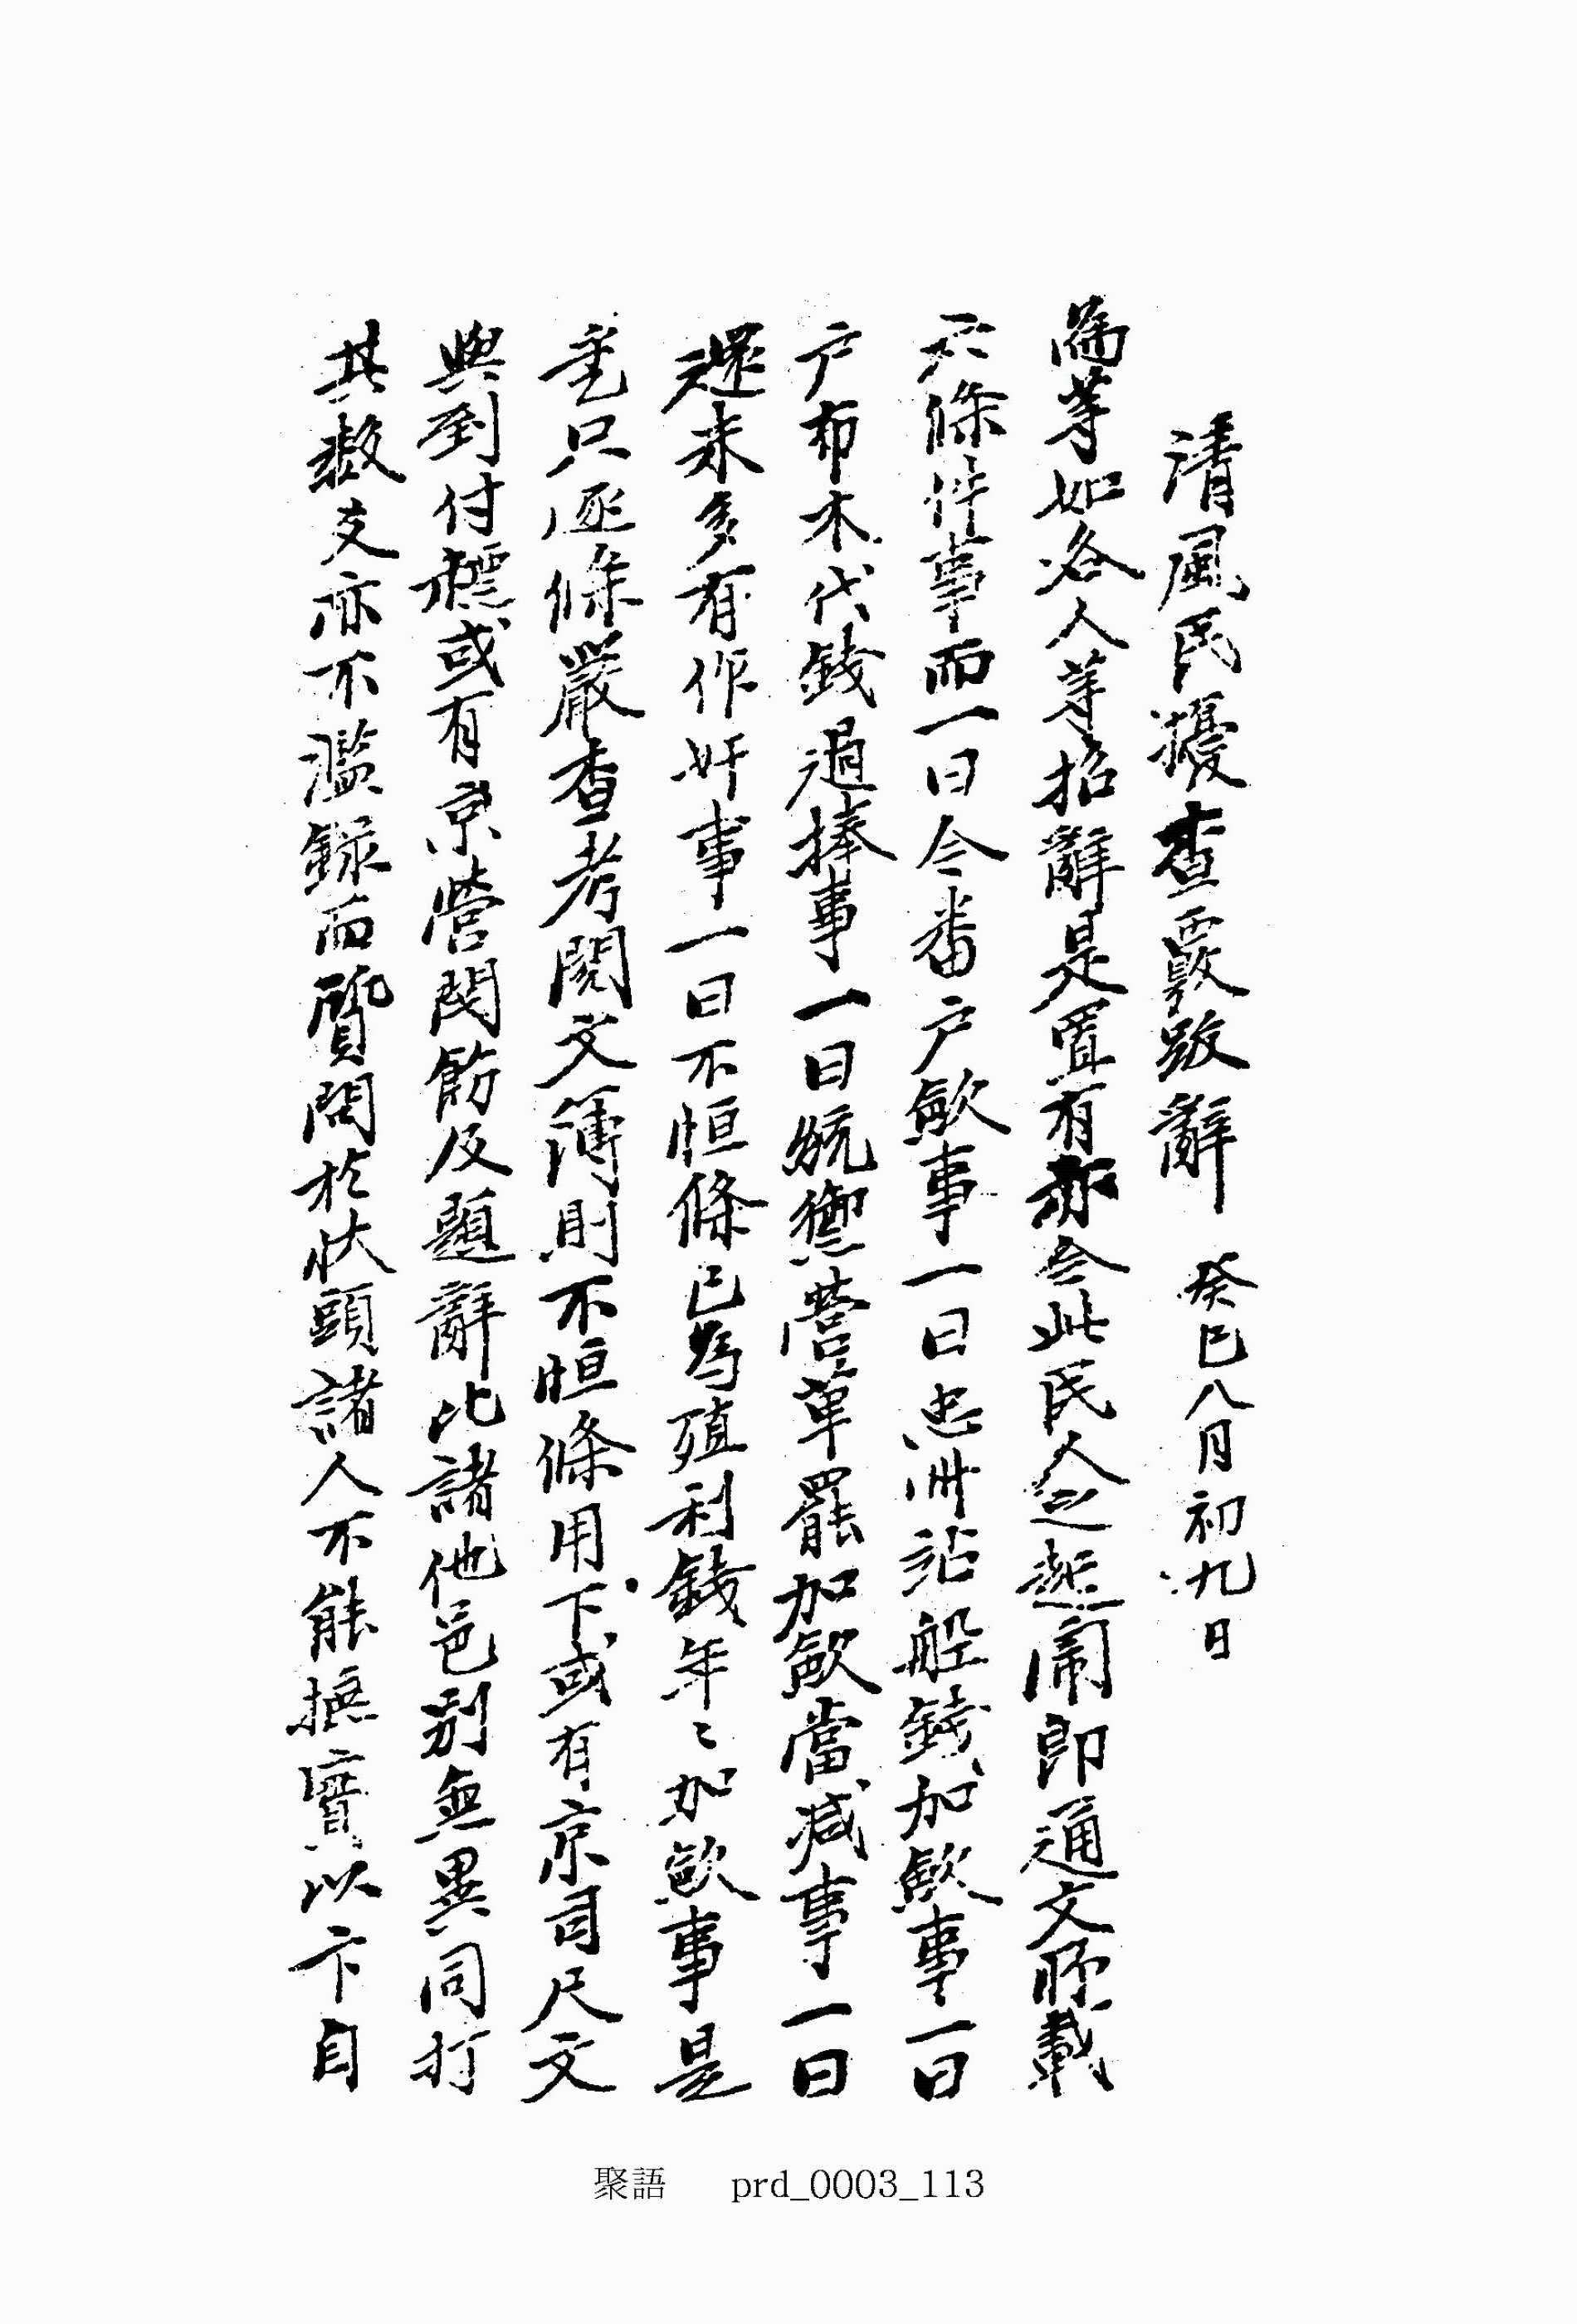 清風民擾查覈跋辭 癸巳八月初九日
爲等如各人等招辭是置有亦今此民人之起鬧即通文所載
六條件事而一曰今番戶斂事一曰忠州站船錢加斂事一曰
戶布木代錢過捧事一曰統禦營單罷加斂當减事一曰
還米多有作奸事一曰不恒條已爲殖利錢年〻加斂事是
乎乃只逐條嚴查考閱文簿則不恒條用下或有京司尺文
與到付標或有京營関飭及題辭比諸他邑別無異同打
其數支亦不濫錄而質問於狀頭諸人不能摭實以卞自
聚語 prd_0003_113